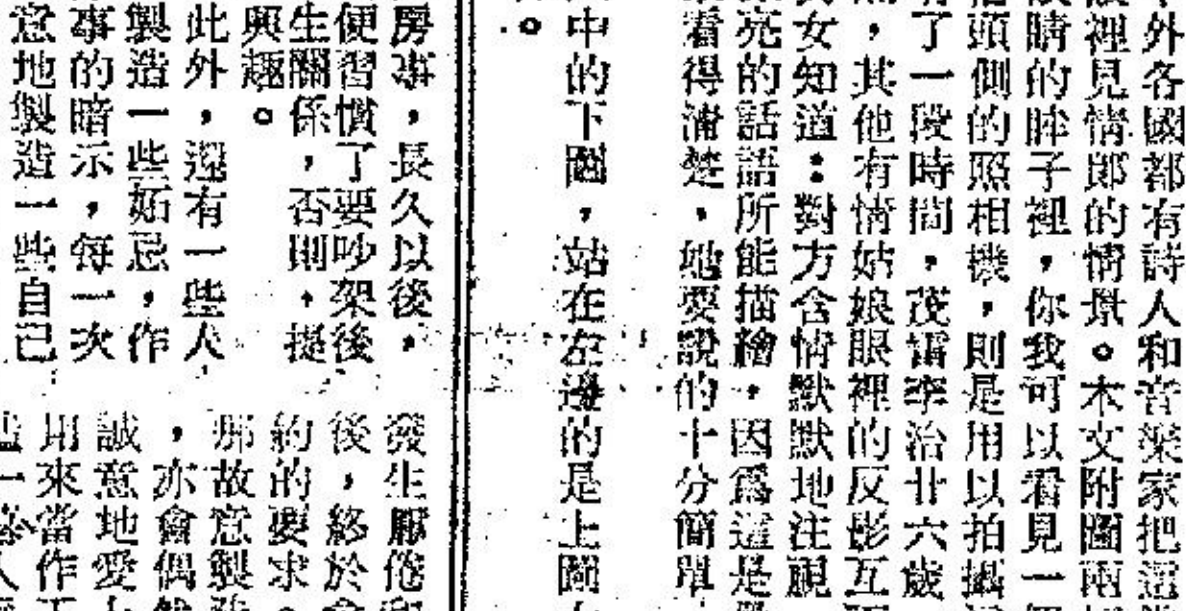 外各國都有詩人和音樂家把這
裡見情郎的情景。本文附圖兩
睛的眸子裡,你我可以看見一
頭側的照相機,則是用以拍攝
了一段時間,茂雷李治廿六歲
,其他有情姑娘眼裡的反影互
女知道:對方含情默默地注視
亮的話語所能描繪,因爲這是
看得清楚,她要說的十分簡單
中的下圖,站在左邊的是上圖
。
房事,長久以後,
便習慣了要吵架後
生關係,否則,提
興趣。
此外,還有一些人
製造一些妬忌,作
事的暗示,每一次
意地製造一些自己
發生厭倦和
後,終於會
約的要求。
那故意製造
,亦會偶然
誠意地愛
用來當作